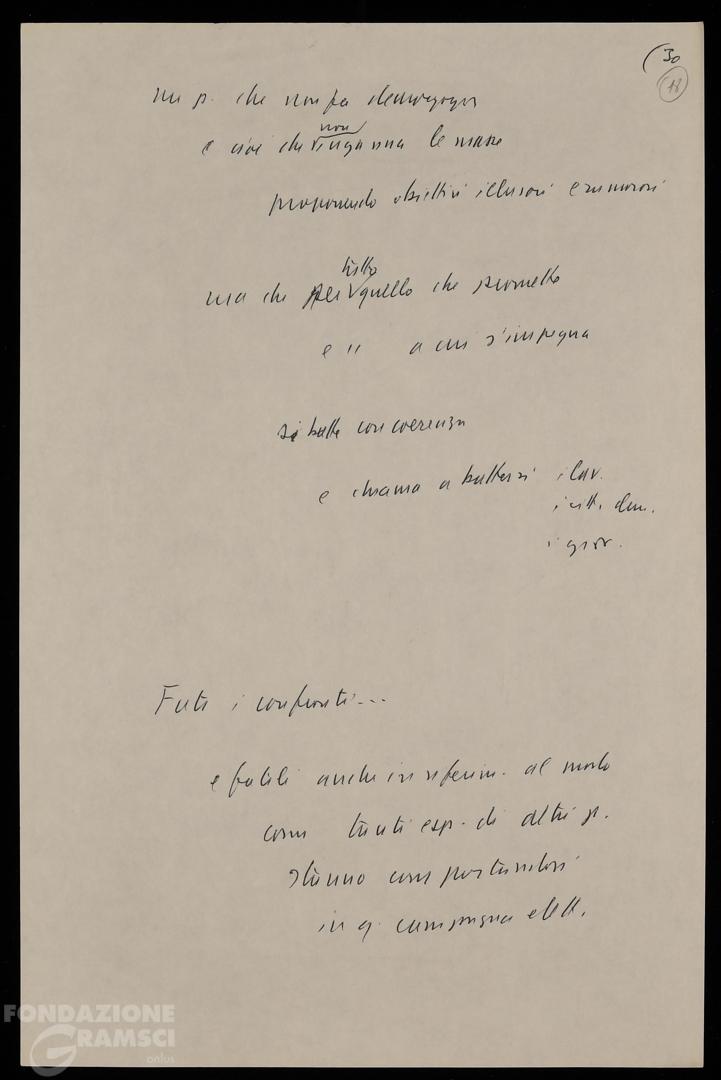 (30
18
un p. che non fa demagogia
e cioè che non inganna le masse
proponendo obiettivi illusori e rumorosi
ma che per tutto quello che promette
e " a cui s'impegna
si batte con coerenza
e chiama a battersi i lav.
i citt. dem.
i giov.
Fate i confronti...
e fateli anche in riferim. al modo
come tanti esp. di altri p.
stanno comportandosi
in q. campagna elett.
FONDAZIONE
GRAMSCI
onlus